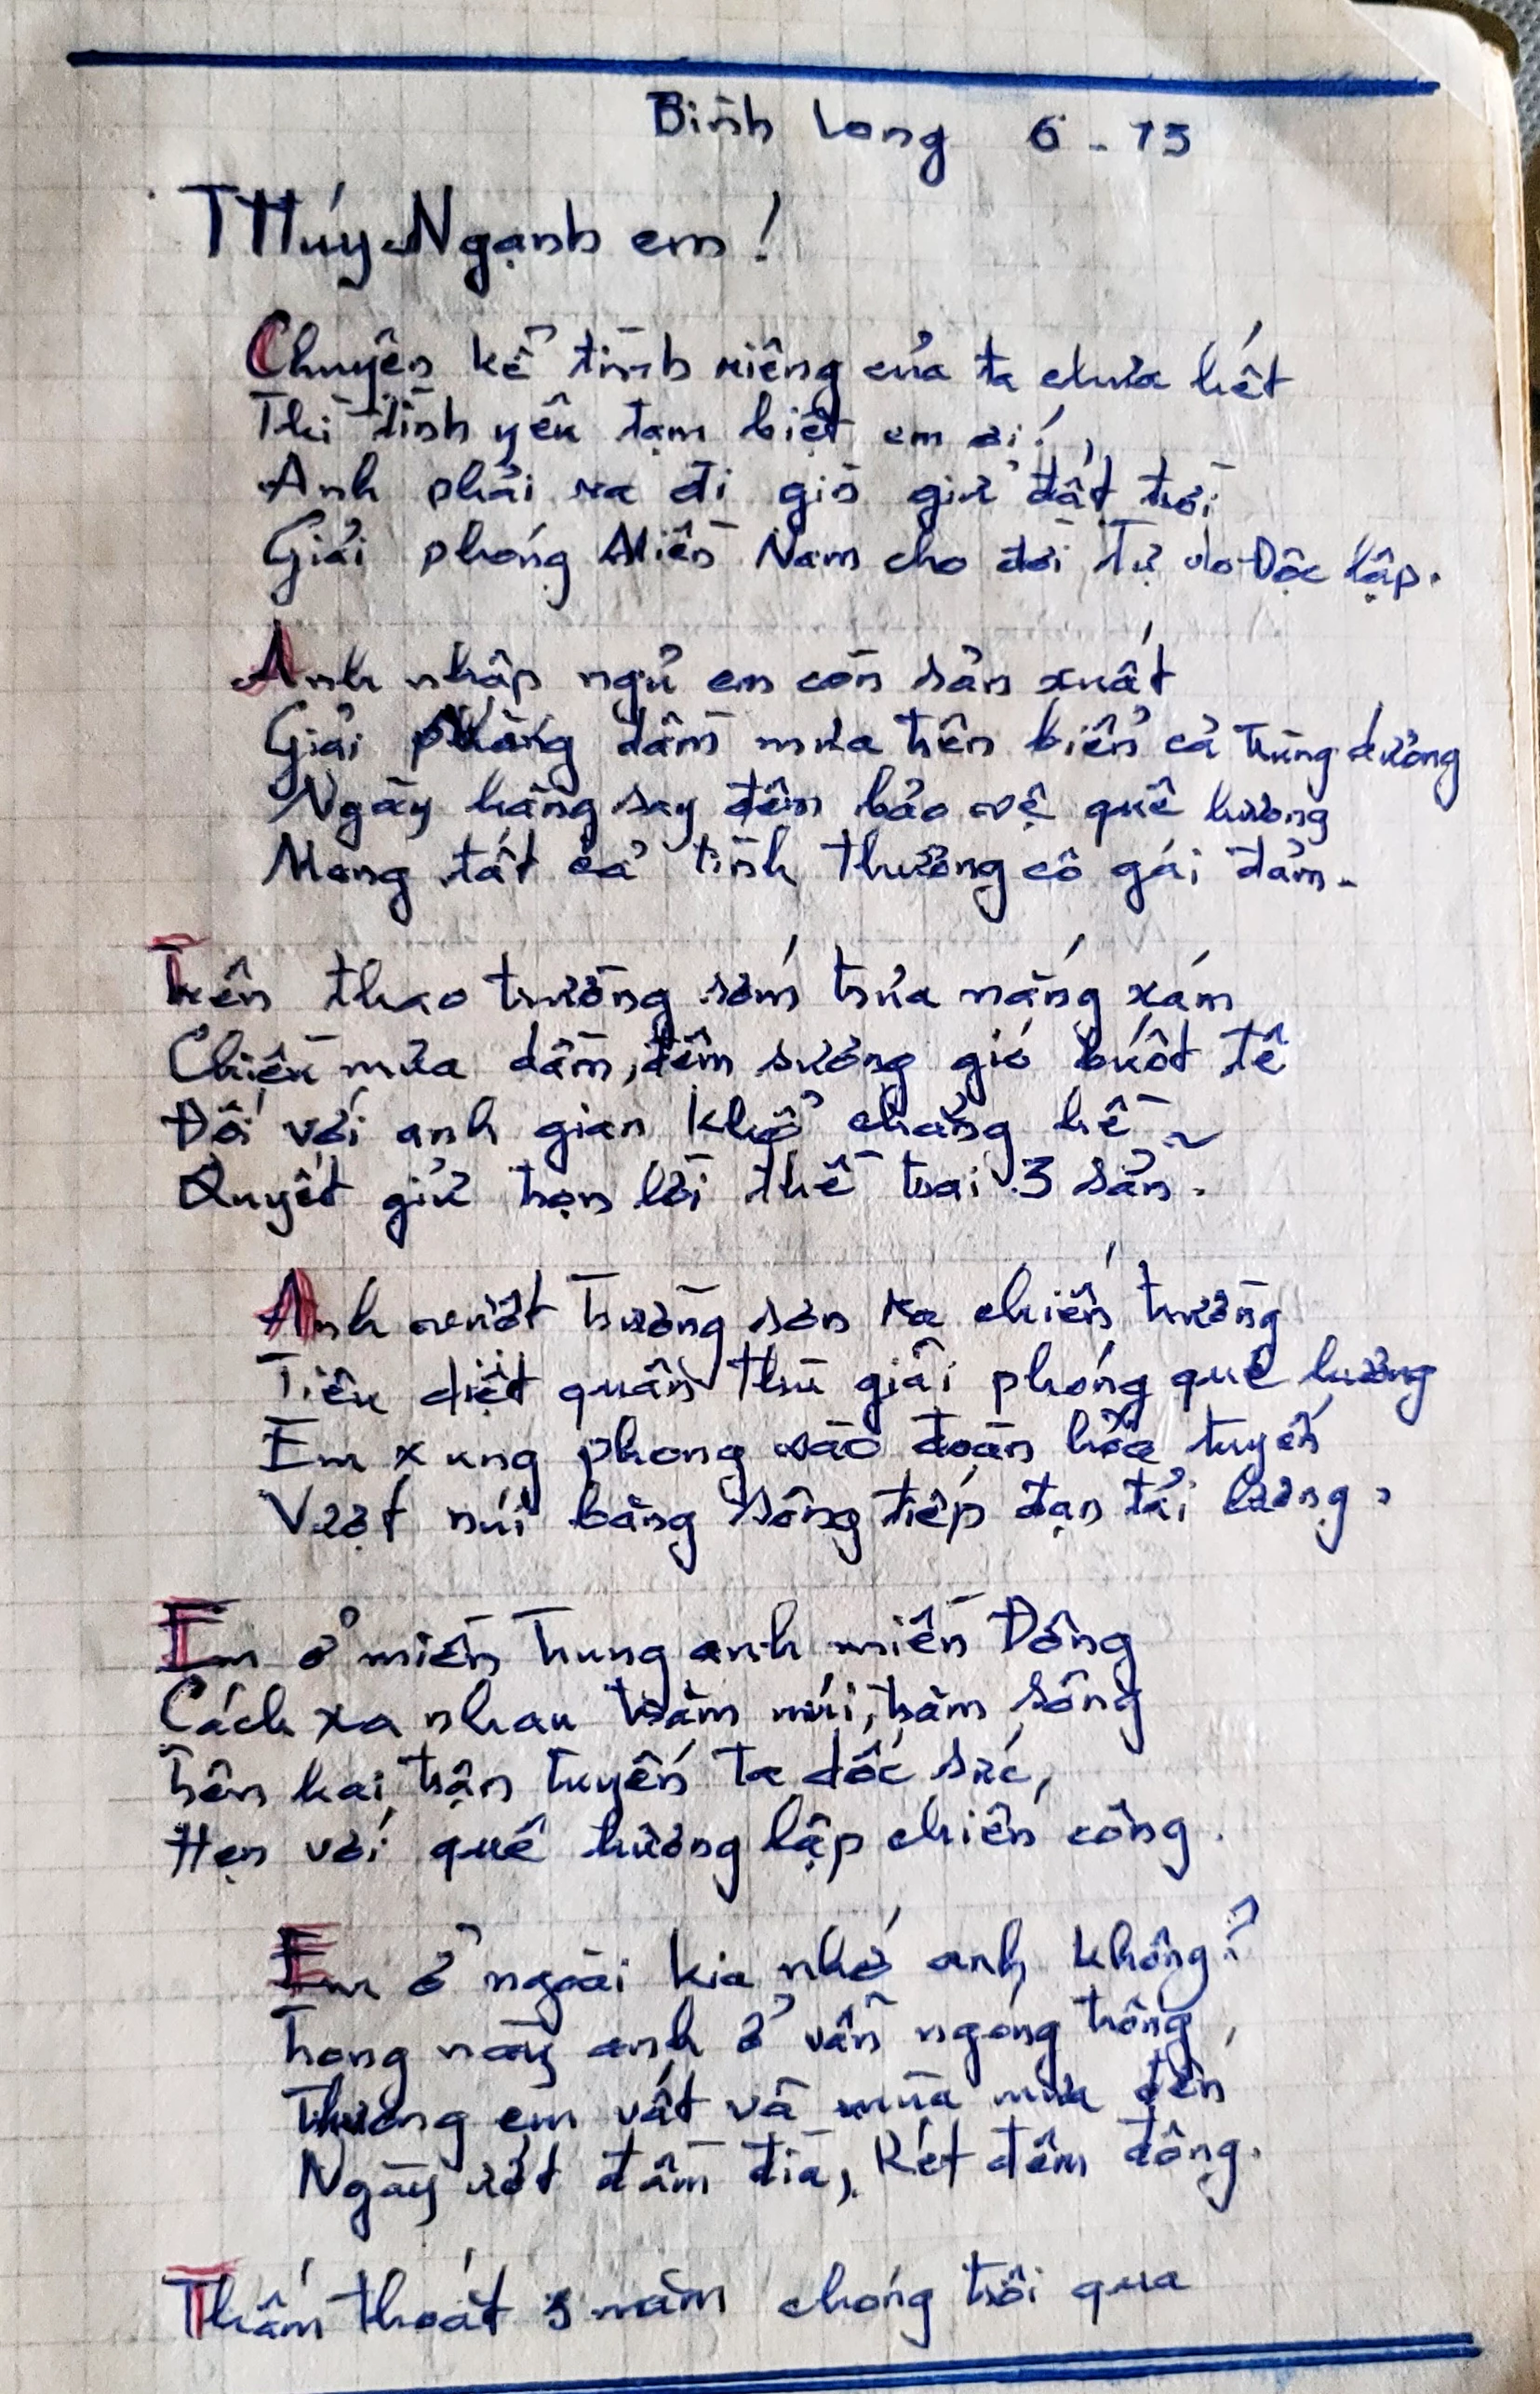 Bình Long 6-75
THúy Ngạnh em!
Chuyện kể tình riêng của ta chưa hết
Thì tình yêu tạm biệt em ơi!
Anh phải ra đi gìn giữ đất trời
Giải phóng Miền Nam cho đời Tự do Độc lập.
Anh nhập ngủ em còn sản xuất
Giải phóng dầm mưa trên biển cả trùng dương
Ngày hăng say đêm bảo vệ quê hương
Mong tất cả tình thương cô gái đảm.
Trên thao trường sớm trưa nắng xám
Chiều mưa dầm, đêm sương gió buốt tê
Đối với anh gian khổ chẳng hề
Quyết giữ trọn lời thề trai 3 sẳn.
Anh vượt Trường sơn ra chiến trường
Tiêu diệt quân thù giải phóng quê hương
Em xung phong vào đoàn hỏa tuyến
Vượt núi băng sông tiếp đạn tải lương,
Em ở miền Trung anh miền Đông
Cách xa nhau trăm núi, trăm sông
Trên hai trận tuyến ta dốc sức,
Hẹn với quê hương lập chiến công.
Em ở ngoài kia nhớ anh không?
Trong này anh ở vẫn ngóng trông,
Thương em vất vã mùa mưa đến
Ngày ướt đầm đìa, Rét đêm đông.
Thấm thoát 3 năm chóng trôi qua